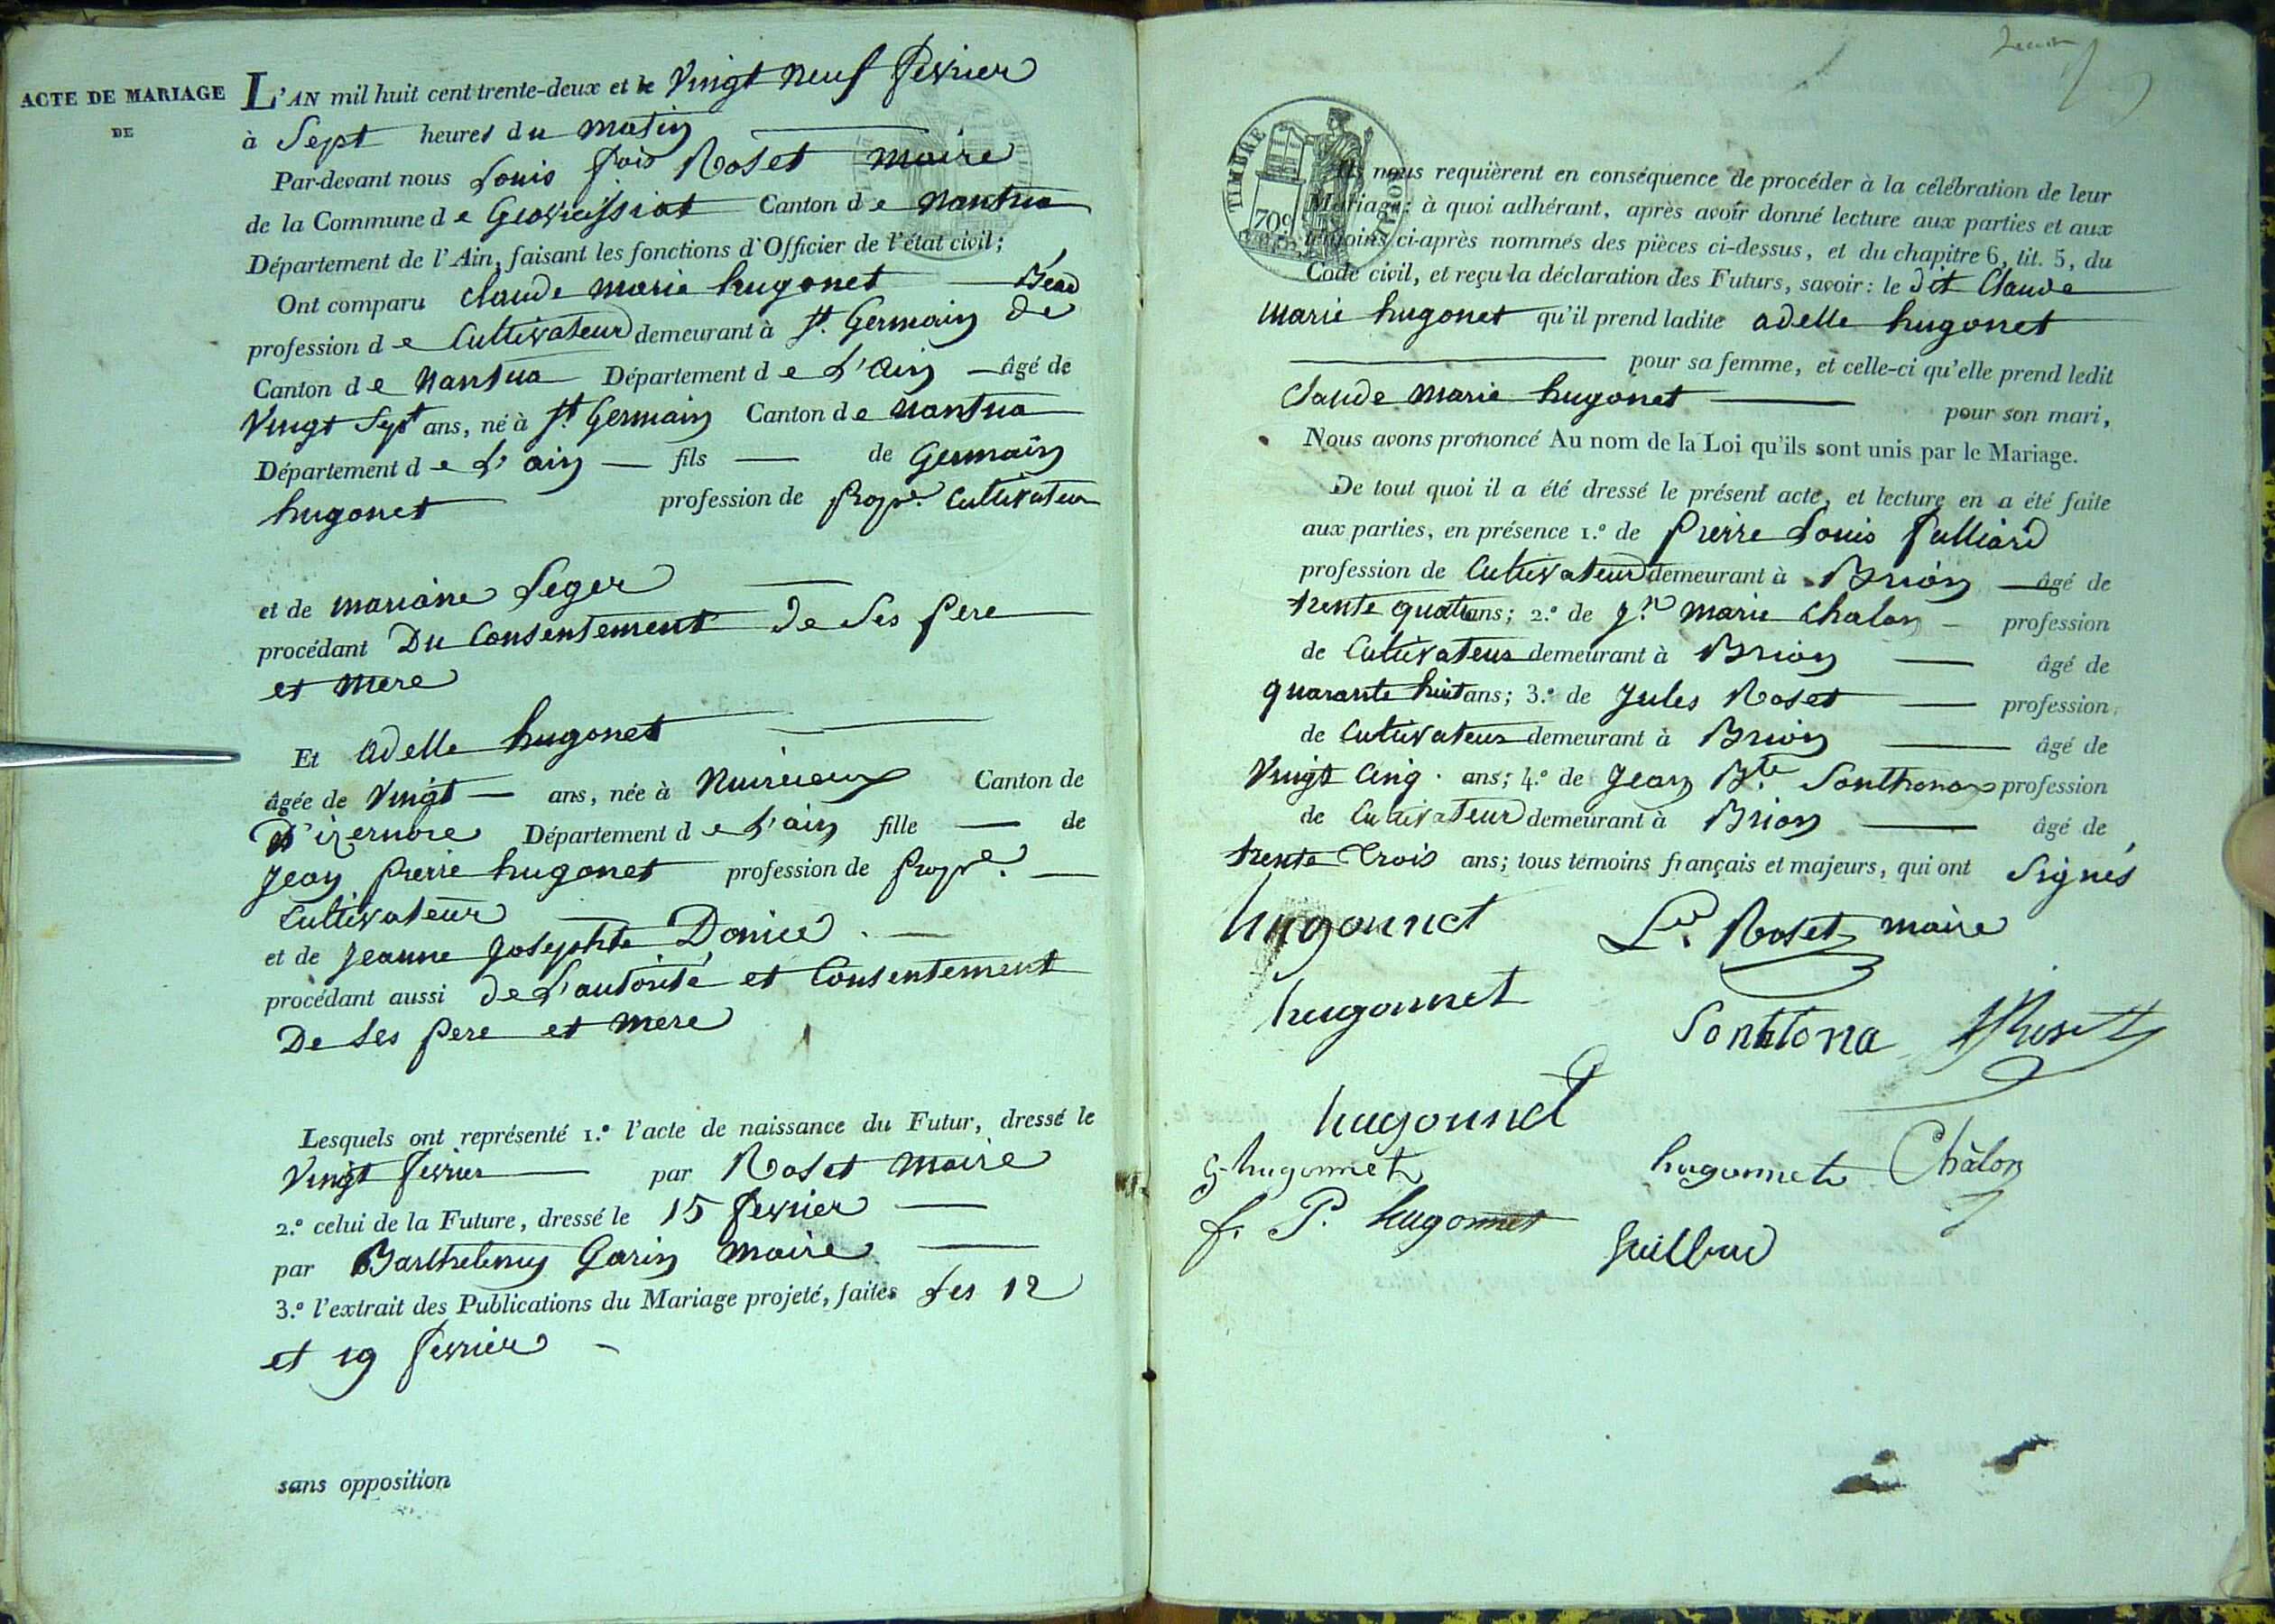 ACTE DE MARIAGE
DE
L'AN mil huit cent trente-deux et le Vingt neuf fevrier
à Sept heures du matin
Par-devant nous Louis fois Roset maire
de la Commune de Geovreissiat Canton de Nantua
Département de l'Ain, faisant les fonctions d'Officier de l'état civil;
Ont comparu Claude marie hugonet
profession de Cultivateur demeurant à St. Germain de
Canton de Nantua Département de L'Ain âgé de
Vingt Sept ans, né à St. Germain Canton de Nantua
Département de L'ain fils de Germain
hugonet profession de propre. Cultivateur
et de mariane Leger
procédant Du Consentement de Ses pere
et mere
Et adelle hugonet
âgée de Vingt ans, née à Nurieux Canton de
D'izernore Département de L'ain fille de
Jean pierre hugonet profession de propre.
Cultivateur
et de Jeanne Josephte
procédant aussi de L'autorité et Consentement
De Ses pere et mere
Lesquels ont représenté 1.º l'acte de naissance du Futur, dressé le
Vingt fevrier par Roset maire
2.º celui de la Future, dressé le 15 fevrier
par Barthelemy Garin maire
3.º l'extrait des Publications du Mariage projeté, faites Les 12
et 19 fevrier
sans opposition
TIMBRE
70c
Ils nous requièrent en conséquence de procéder à la célébration de leur
Mariage: à quoi adhérant, après avoir donné lecture aux parties et aux
témoins ci-après nommés des pièces ci-dessus, et du chapitre 6, tit. 5, du
Code civil, et reçu la déclaration des Futurs, savoir: le dit Claude
marie hugonet qu'il prend ladite adelle hugonet
pour sa femme, et celle-ci qu'elle prend ledit
Claude marie hugonet pour son mari,
Nous avons prononcé Au nom de la Loi qu'ils sont unis par le Mariage.
De tout quoi il a été dressé le présent acte, et lecture en a été faite
aux parties, en présence 1.º de pierre Louis Julliard
profession de Cultivateur demeurant à Brion âgé de
trente quatre ans; 2.º de Jn marie Chalon profession
de Cultivateur demeurant à Brion âgé de
quarante huit ans; 3.º de Jules Roset profession
de Cultivateur demeurant à Brion âgé de
Vingt Cinq ans; 4.º de Jean Bte. Sonthonax profession
de Cultivateur demeurant à Brion âgé de
trente trois ans; tous témoins français et majeurs, qui ont Signés
hugonnet Ls. Roset maire
hugonnet
Sonthona JRoset
hugonnet
g-hugonnet hugonnet Châlon
f. P. hugonnet
Juilliard